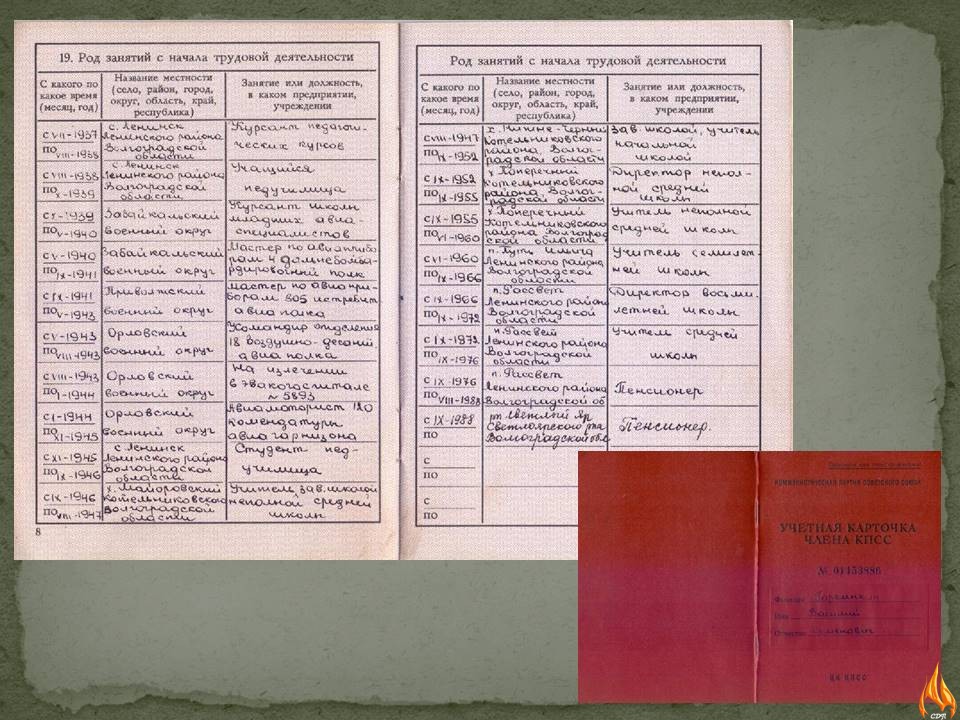 19. Род занятий с начала трудовой деятельности
С какого по какое время (месяц, год)
Название местности (село, район, город, округ, область, край, республика)
Занятие или должность, в каком предприятии, учреждении
с VII-1937 по VIII-1938
с. Ленинск Ленинского района Волгоградской области
Курсант педагогических курсов
с VIII-1938 по X-1939
с. Ленинск Ленинского района Волгоградской области
Учащийся педучилища
с X-1939 по V-1940
Забайкальский военный округ
Курсант школы младших авиаспециалистов
с V-1940 по IX-1941
Забайкальский военный округ
Мастер по авиаприборам 4 полк
с IX-1941 по V-1943
Приволжский военный округ
Мастер по авиоприборам 805 истребит. авиаполка
с V-1943 по VIII-1943
Орловский военный округ
Командир отделения 18 воздушно-десант. авиаполка
с VIII-1943 по I-1944
Орловский военный округ
На излечении в эвакогоспитале № 5893
с I-1944 по XI-1945
Орловский военный округ
Авиамоторист 120 комендатуры авиагарнизона
с XI-1945 по IX-1946
с. Ленинск Ленинского района Волгоградской области
Студент педучилища
с IX-1946 по VIII-1947
х. Майоровский Котельниковского Волгоградской области
Учитель, зав. школой неполной средней школы
8
Род занятий с начала трудовой деятельности
С какого по какое время (месяц, год)
Название местности (село, район, город, округ, область, край, республика)
Занятие или должность, в каком предприятии, учреждении
с VIII-1947 по IX-1952
х. Котельниковского района, Волгоградской области
Зав. школой, учитель начальной школой
с IX-1952 по IX-1955
х. Поперечный Котельниковского района, Волгоградской области
Директор неполной средней школы
с IX-1955 по VI-1960
х. Поперечный Котельниковского района Волгоградской области
Учитель неполной средней школы
с VI-1960 по IX-1966
п. Путь Ильича Ленинского района Волгоградской области
Учитель семилетней школы
с IX-1966 по IX-1972
п. Рассвет Ленинского района Волгоградской области
Директор восьмилетней школы
с IX-1972 по IX-1976
п. Рассвет Ленинского района Волгоградской области
Учитель средней школы
с IX-1976 по VIII-1988
п. Рассвет Ленинского района Волгоградской об
Пенсионер
с IX-1988 по
рп Светлый Яр Светлоярского р-на Волгоградской обл.
Пенсионер.
с
по
с
по
КОММУНИСТИЧЕСКАЯ ПАРТИЯ СОВЕТСКОГО СОЮЗА
УЧЕТНАЯ КАРТОЧКА
ЧЛЕНА КПСС
№ 01453886
Фамилия
Имя Василий
Отчество
ЦК КПСС
СДП